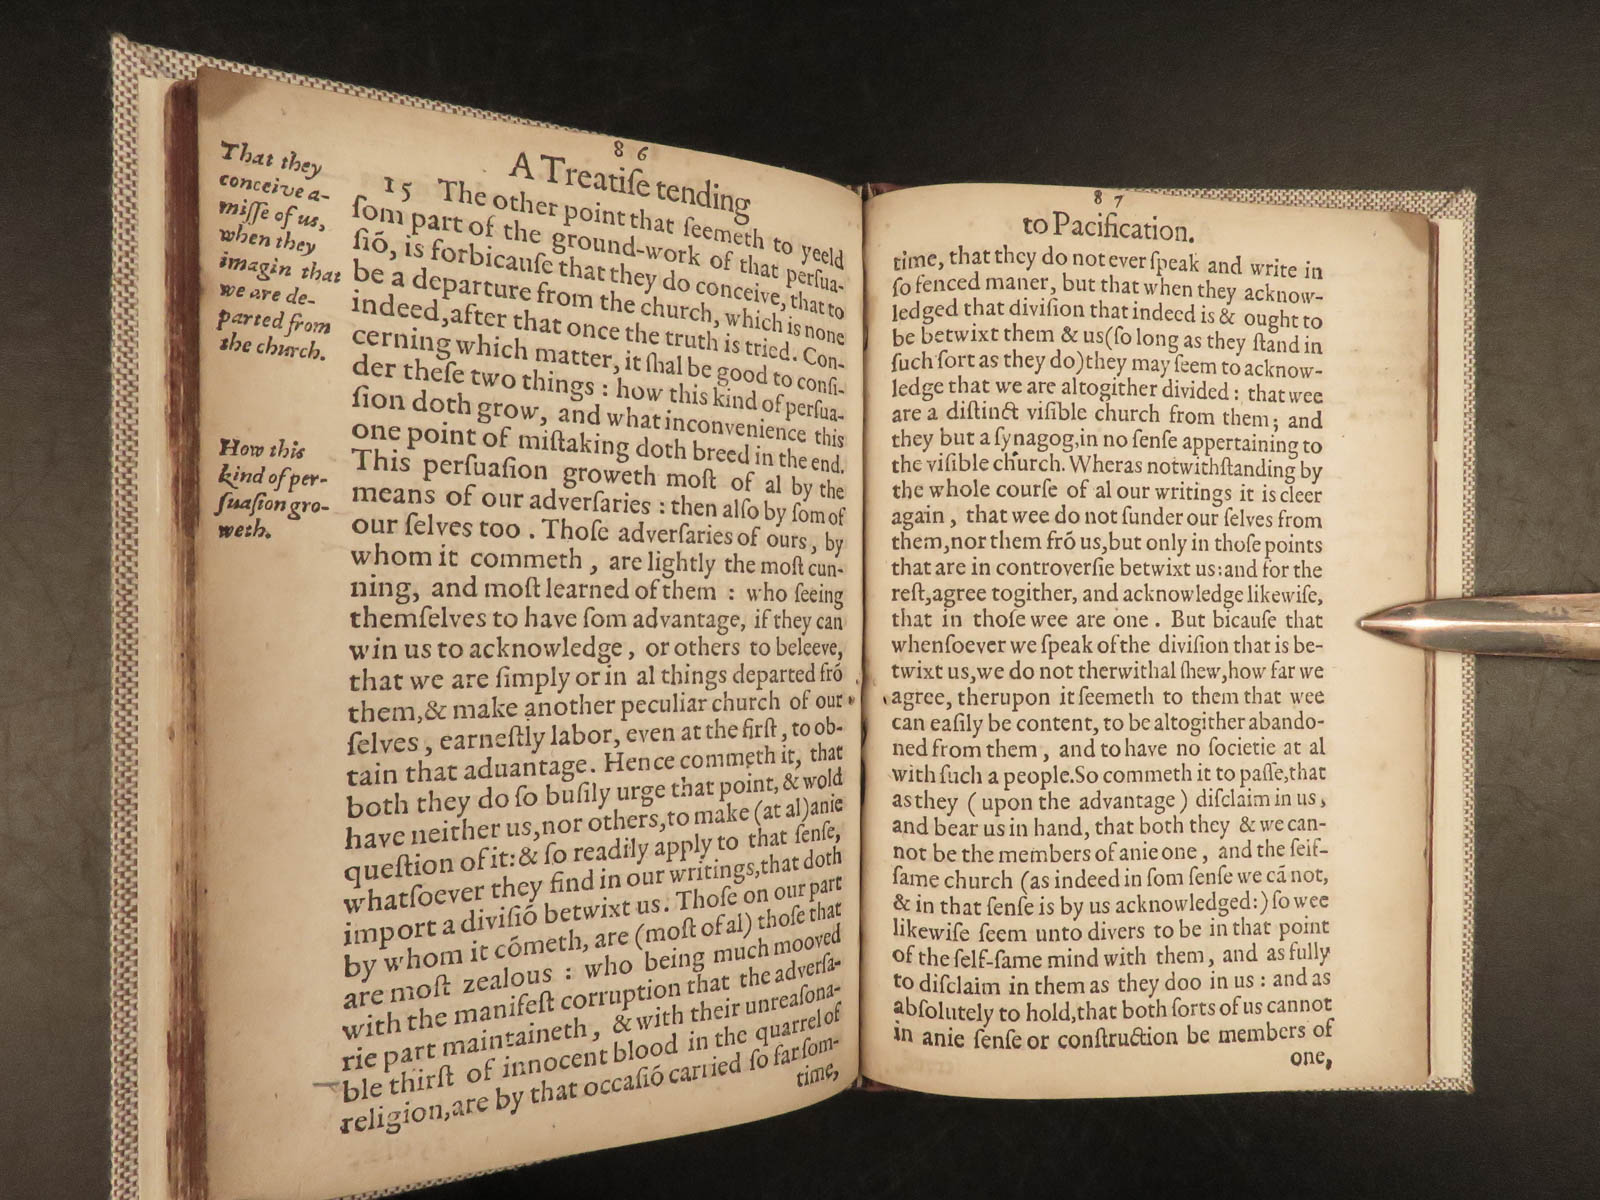 86
A Treatiſe tending
That they
conceive a-
miſſe of us,
when they
imagin that
we are de-
parted from
the church.
15 The other point that ſeemeth to yeeld
ſom part of the ground-work of that perſua-
ſió, is forbicauſe that they do conceive, that to
be a departure from the church, which is none
indeed, after that once the truth is tried. Con-
cerning which matter, it ſhal be good to conſi-
der theſe two things : how this kind of perſua-
ſion doth grow, and what inconvenience this
one point of miſtaking doth breed in the end.
How this
kind of per-
ſuaſion gro-
weth.
This perſuaſion groweth moſt of al by the
means of our adverſaries : then alſo by ſom of
our ſelves too . Thoſe adverſaries of ours, by
whom it commeth , are lightly the moſt cun-
ning, and moſt learned of them : who ſeeing
themſelves to have ſom advantage, if they can
win us to acknowledge, or others to beleeve,
that we are ſimply or in al things departed fró
them,& make another peculiar church of our
ſelves , earneſtly labor, even at the firſt, to ob-
tain that aduantage. Hence commeth it, that
both they do ſo buſily urge that point, & wold
have neither us,nor others,to make (at al)anie
queſtion of it:& ſo readily apply to that ſenſe,
whatſoever they find in our writings,that doth
import a diviſió betwixt us. Thoſe on our part
by whom it cómeth, are (moſt of al) thoſe that
are moſt zealous : who being much mooved
with the manifeſt corruption that the adverſa-
rie part maintaineth , & with their unreaſona-
ble thirſt of innocent blood in the quarrel of
religion,are by that occaſió carried ſo far ſom-
time,
87
to Pacification.
time, that they do not ever ſpeak and write in
ſo fenced maner, but that when they acknow-
ledged that diviſion that indeed is & ought to
be betwixt them & us(ſo long as they ſtand in
ſuch ſort as they do)they may ſeem to acknow-
ledge that we are altogither divided : that wee
are a diſtinct viſible church from them; and
they but a ſynagog,in no ſenſe appertaining to
the viſible church. Wheras notwithſtanding by
the whole courſe of al our writings it is cleer
again , that wee do not ſunder our ſelves from
them,nor them fró us,but only in thoſe points
that are in controverſie betwixt us:and for the
reſt,agree togither, and acknowledge likewiſe,
that in thoſe wee are one . But bicauſe that
whenſoever we ſpeak of the diviſion that is be-
twixt us,we do not therwithal ſhew,how far we
agree, therupon it ſeemeth to them that wee
can eaſily be content, to be altogither abando-
ned from them , and to have no ſocietie at al
with ſuch a people.So commeth it to paſſe,that
as they ( upon the advantage ) diſclaim in us,
and bear us in hand, that both they & we can-
not be the members of anie one , and the ſelf-
ſame church (as indeed in ſom ſenſe we cā not,
& in that ſenſe is by us acknowledged:) ſo wee
likewiſe ſeem unto divers to be in that point
of the ſelf-ſame mind with them, and as fully
to diſclaim in them as they doo in us : and as
abſolutely to hold,that both ſorts of us cannot
in anie ſenſe or conſtruction be members of
one,